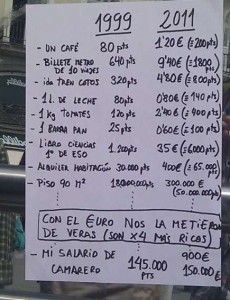 1999 2011
- UN CAFÉ 80 pts 1'20€ (=200pts)
- BILLETE METRO DE 10 VIAJES 640 pts 9'40€ (=1800 pts)
- ida TREN COTOS 320 pts 4'80€ (=800 pts)
- 1 L. DE LECHE 80pts 0'80€ (=140 pts)
- 1 Kg TOMATES 120 pts 2'40€ (=400 pts)
- 1 BARRA PAN 25 pts 0'60€ (=100 pts)
- LIBRO CIENCIAS 1º DE ESO 1.200 pts 35€ (=6000 pts)
- ALQUILER HABITACIÓN 30.000 pts 400€ (=65.000 pts)
- PISO 90 m² pts 300.000 € (50.000.000 pts)
CON EL €URO NOS LA METIERON
DE VERAS (SON X4 MÁS RICOS)
- MI SALARIO DE CAMARERO 145.000 PTS 900€ 150.000